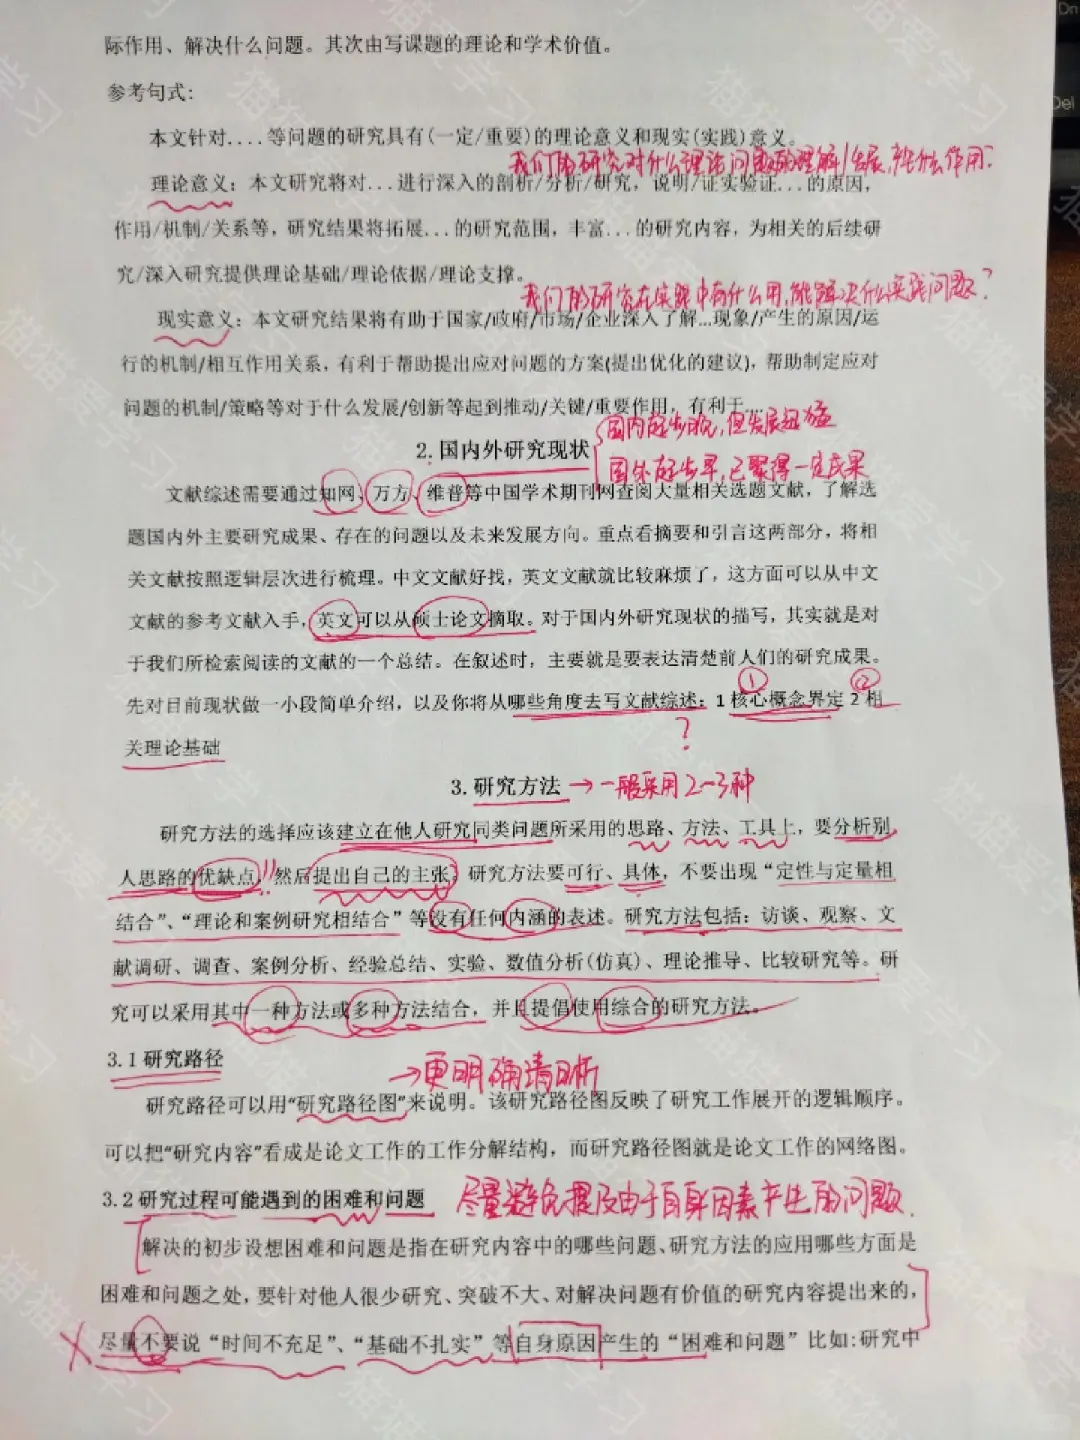 际作用、解决什么问题。其次由写课题的理论和学术价值。
参考句式:
本文针对....等问题的研究具有(一定/重要)的理论意义和现实(实践)意义。
我们的研究对什么理论问题的理解/发展,有什么作用?
理论意义：本文研究将对...进行深入的剖析/分析/研究，说明/证实验证...的原因，
作用/机制/关系等，研究结果将拓展...的研究范围，丰富...的研究内容，为相关的后续研
究/深入研究提供理论基础/理论依据/理论支撑。
我们的研究在实践中有什么用,能解决什么实践问题?
现实意义：本文研究结果将有助于国家/政府/市场/企业深入了解...现象/产生的原因/运
行的机制/相互作用关系，有利于帮助提出应对问题的方案(提出优化的建议)，帮助制定应对
问题的机制/策略等对于什么发展/创新等起到推动/关键/重要作用，有利于...
国内起步晚,但发展迅猛
2. 国内外研究现状
国外起步早,已取得一定成果
文献综述需要通过知网、万方、维普等中国学术期刊网查阅大量相关选题文献，了解选
题国内外主要研究成果、存在的问题以及未来发展方向。重点看摘要和引言这两部分，将相
关文献按照逻辑层次进行梳理。中文文献好找，英文文献就比较麻烦了，这方面可以从中文
文献的参考文献入手，英文可以从硕士论文摘取。对于国内外研究现状的描写，其实就是对
于我们所检索阅读的文献的一个总结。在叙述时，主要就是要表达清楚前人们的研究成果。
① ②
先对目前现状做一小段简单介绍，以及你将从哪些角度去写文献综述：1 核心概念界定 2 相
?
关理论基础
3. 研究方法 → 一般采用2~3种
研究方法的选择应该建立在他人研究同类问题所采用的思路、方法、工具上，要分析别
人思路的优缺点，!! 然后提出自己的主张。研究方法要可行、具体，不要出现“定性与定量相
结合”、“理论和案例研究相结合”等没有任何内涵的表述。研究方法包括：访谈、观察、文
献调研、调查、案例分析、经验总结、实验、数值分析(仿真)、理论推导、比较研究等。研
究可以采用其中一种方法或多种方法结合，并且提倡使用综合的研究方法。
3.1 研究路径
→更明确清晰
研究路径可以用“研究路径图”来说明。该研究路径图反映了研究工作展开的逻辑顺序。
可以把“研究内容”看成是论文工作的工作分解结构，而研究路径图就是论文工作的网络图。
3.2 研究过程可能遇到的困难和问题 尽量避免提及由于自身因素产生的问题.
解决的初步设想困难和问题是指在研究内容中的哪些问题、研究方法的应用哪些方面是
困难和问题之处，要针对他人很少研究、突破不大、对解决问题有价值的研究内容提出来的，
尽量不要说“时间不充足”、“基础不扎实”等自身原因产生的“困难和问题”比如:研究中
猫猫爱学习